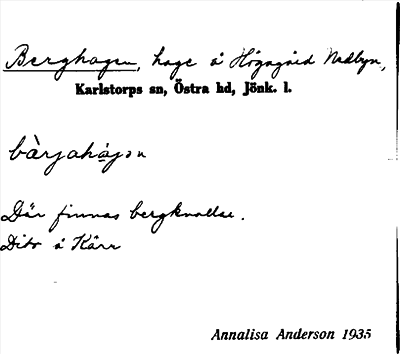 Berghagen, hage å Högagärd Nedbyn,
Karlstorps sn, Östra hd, Jönk. l.
bàrjahájən
Där finnas bergknallar.
Dito å Kärr
Annalisa Anderson 1935